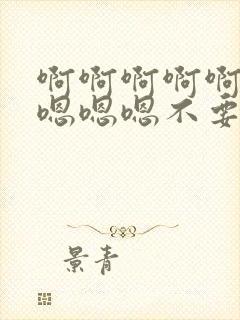 啊啊啊啊啊
嗯嗯嗯不要
景青